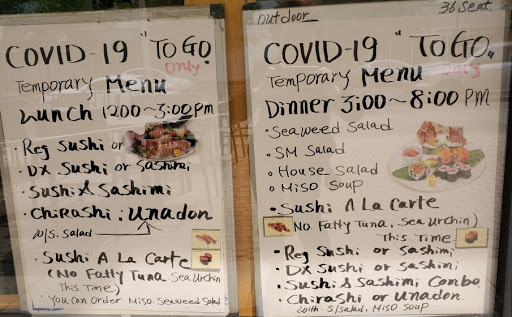 COVID-19 "TO GO"
only
Temporary Menu
Lunch 12:00~3:00pm
• Reg Sushi or
• DX Sushi or Sashimi
• Sushi & Sashimi
• Chirashi, Unadon
w/S. Salad
• Sushi A La Carte
(No Fatty Tuna. Sea Urchin
This Time)
"You Can Order Miso. Seaweed Salad
outdoor
36 Seat.
COVID-19 "TO GO"
only
Temporary Menu
Dinner 3:00~8:00 PM
• Seaweed Salad
• SM Salad
• House Salad
• Miso Soup
• Sushi A La Carte
(No Fatty Tuna. Sea Urchin)
This Time
• Reg Sushi or Sashimi
• DX Sushi or Sashimi
• Sushi & Sashimi Combo
• Chirashi or Unadon
with S/Salad. Miso Soup